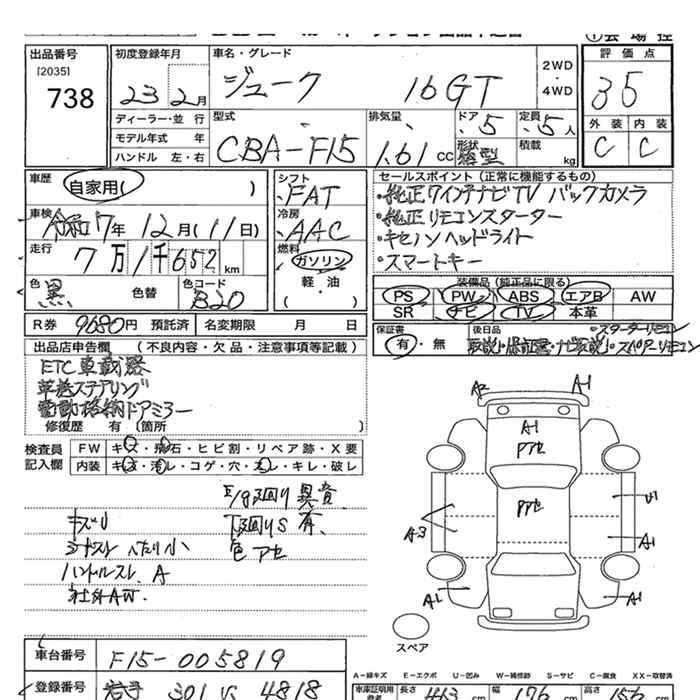 出品番号 初度登録年月 車名・グレード 評価点
[2035]
738
23 2月 ジューク 16GT 2WD・4WD 35
ディーラー・並行
モデル年式 年
ハンドル 左・右
型式 排気量 ドア 定員 外装 内装
CBA-F15 1.61 cc 5 5人 C C
形状 箱型 積載 kg
車歴 自家用( ) シフト FAT
車検 令和7年12月(11日) 冷房 AAC
走行 7万1千652km 燃料 ガソリン
軽・油
( )
色 黒 色替 色コード B20
セールスポイント(正常に機能するもの)
・純正ワインチナビTV バックカメラ
・純正リモコンスターター
・キセノンヘッドライト
・スマートキー
装備品(純正品に限る)
PS PW ABS エアB AW
SR ナビ TV 本革
R券 9680円 預託済 名変期限 月 日
保証書 有・無 後日品 ・スターターリモコン
取説・保証書・ナビ取説・スペアリモコン
出品店申告欄 (不良内容・欠品・注意事項等記載)
ETC車載器
革巻ステアリング
電動格納ドアミラー
修復歴 有 〔箇所 〕
検査員記入欄 FW キズ・飛石・ヒビ割・リペア跡・X要
内装 キズ・汚レ・コゲ・穴・スレ・キレ・破レ
E/g廻り異音
キズU 下廻りS有、
シートスレ へたり小 色アセ
ハンドルスレ、A
社外AW.
A2 A-1
A-1
アセ
アセ
U1
A-3
A1
A1 A1
スペア
車台番号 F15-005819
A−線キズ E−エクボ U−凹み W−補修跡 S−サビ C−腐食 XX−取替済
登録番号 岩手 301 4818
車庫証明用 長さ 413cm 幅 176cm 高さ 156cm